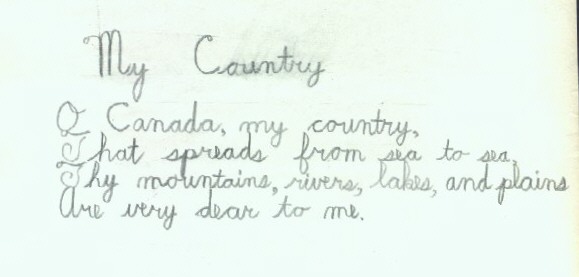 My Country
O Canada, my country,
That spreads from sea to sea,
Thy mountains, rivers, lakes, and plains
Are very dear to me.